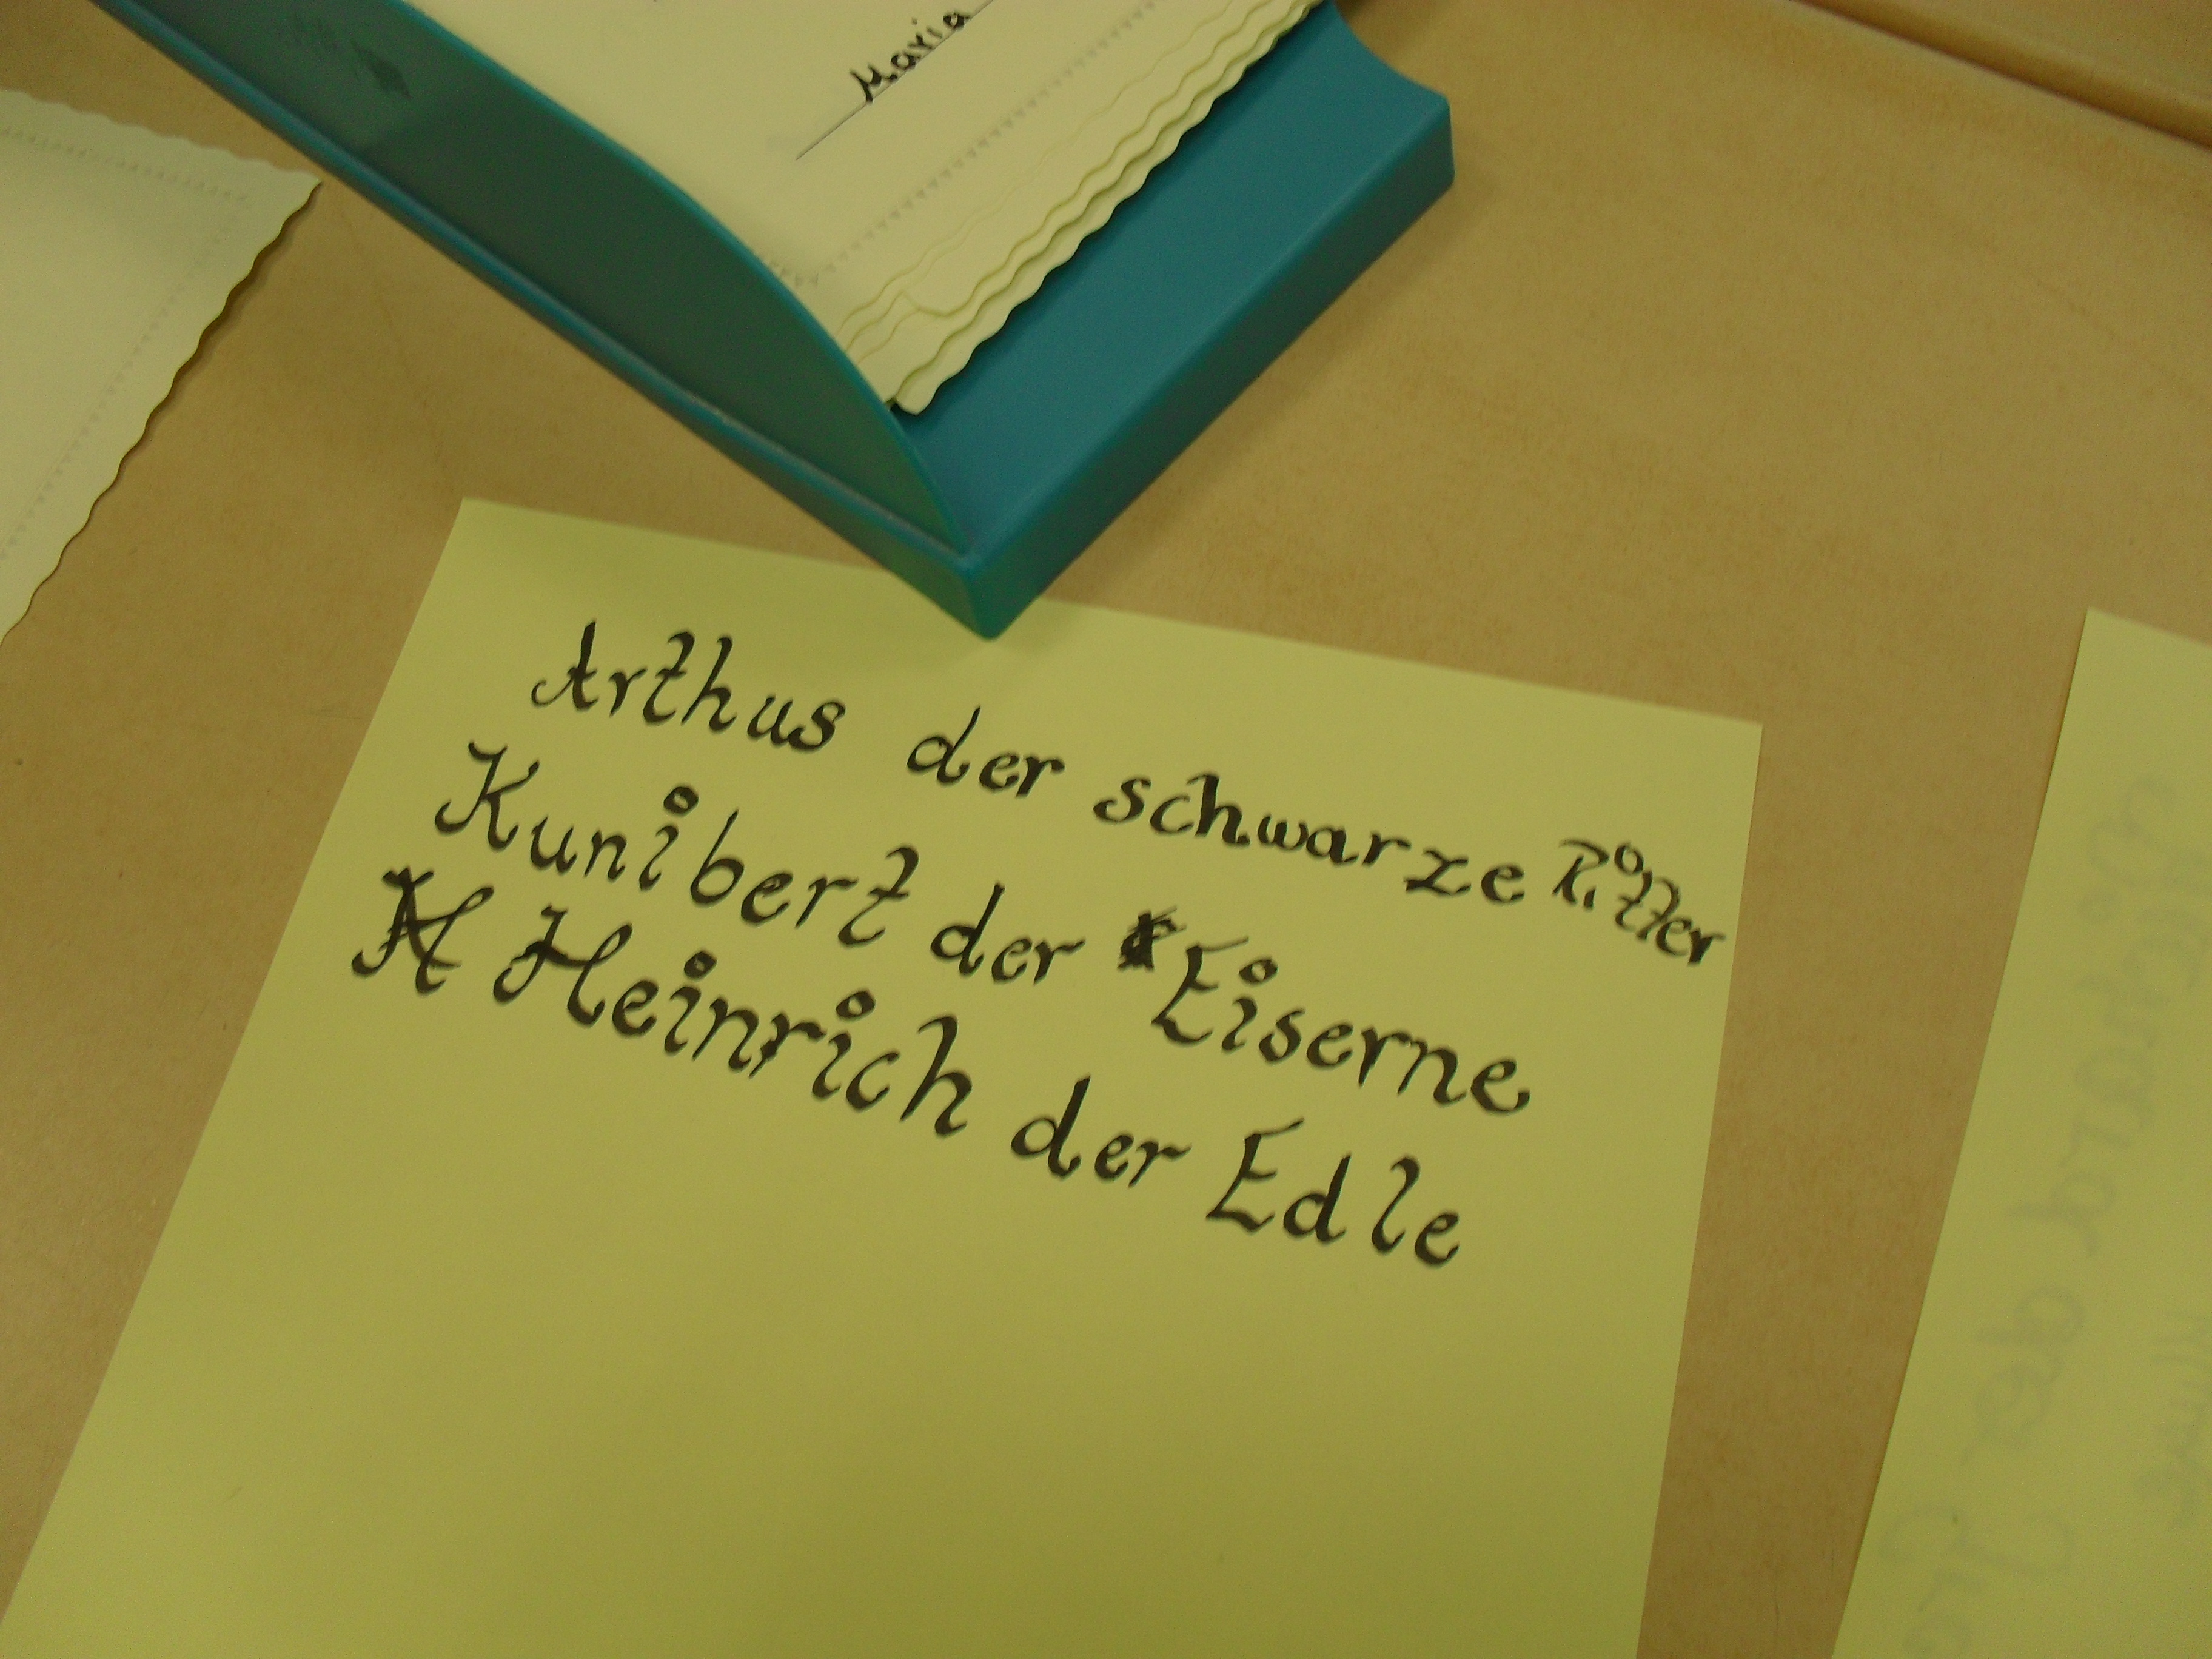 Maria
Arthus der schwarze Ritter
Kunibert der Eiserne
H Heinrich der Edle